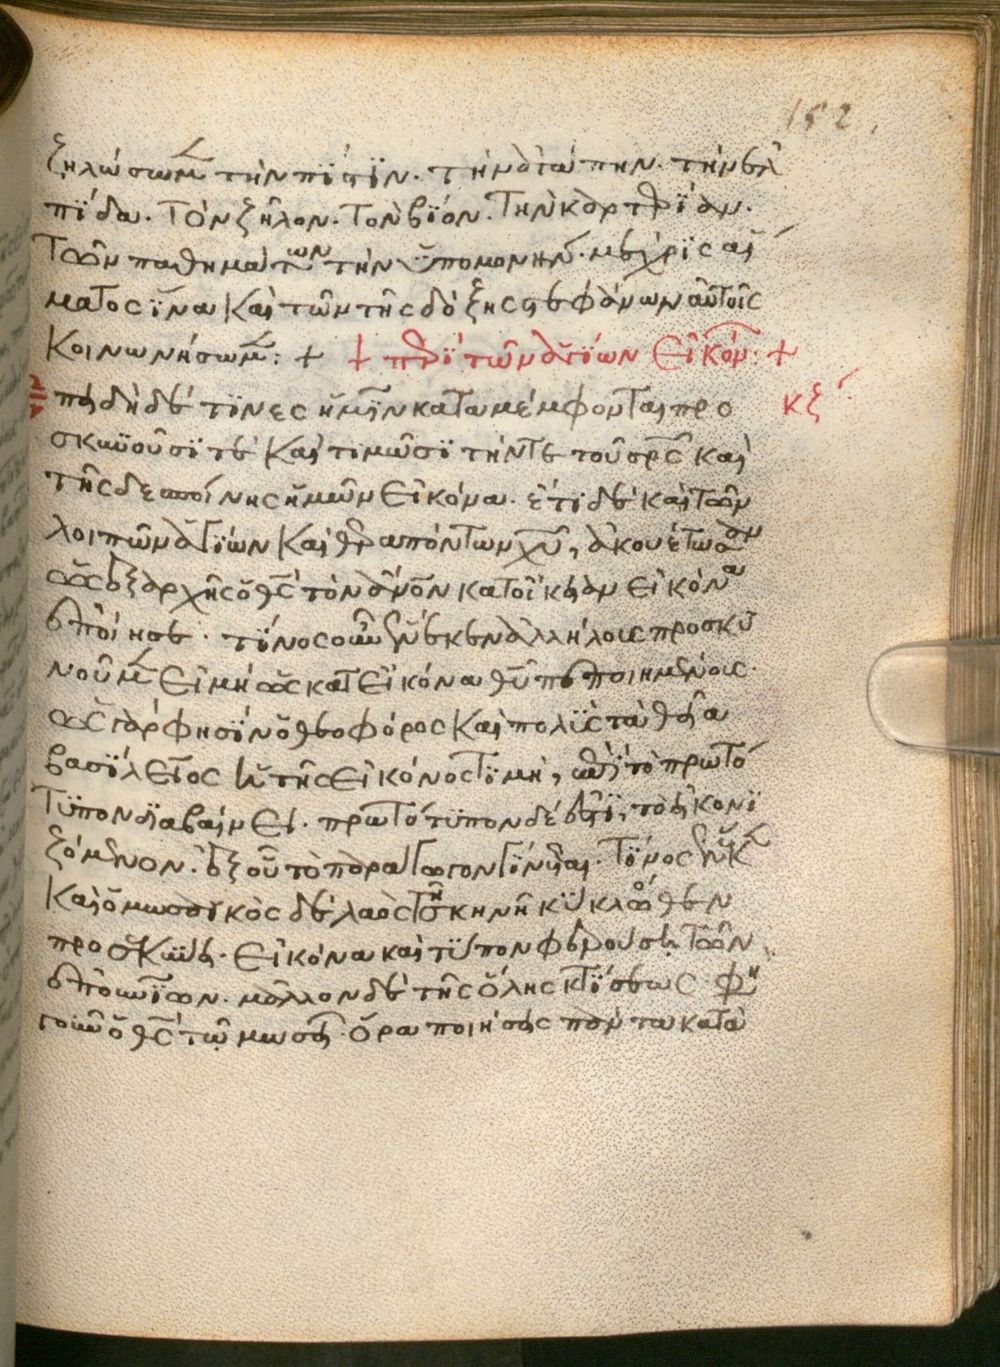 152
ζηλώσωμεν τὴν πίστϊν. τὴν ἀγάπην. τὴν ἐλ
πίδα. Τὸν ζῆλον. Τὸν βϊόν. Τὴν καρτερϊαν.
Τῶν παθημάτων τὴν ὑπομονὴν. μέχρϊς αἵ
ματος ἵνα καὶ τῶν τῆς δόξης στεφάνων αὐτοῖς
κοινωνήσωμεν: + + περὶ τῶν ἁγίων εἰκόν: +
ἐπειδὴ δέ τϊνες ἡμῖν καταμέμφονται προ κξ
σκυνοῦσϊ τε καὶ τιμῶσϊ τήν τε τοῦ σρς καὶ
τῆς δεσποίνης ἡμῶν εἰκόνα. ἔτι δὲ καὶ τῶν
λοιπῶν ἁγίων καὶ θεραπόντων χυ, ἀκουέτωσαν
ὡς ἐξ ἀρχῆς ὁ θς τὸν ἄνον κατ οἰκείαν εἰκόνα
ἐποίησε. τίνος οὖν ἕνεκεν ἀλλήλους προσκυ
νοῦμεν εἰ μὴ ὡς κατ εἰκόνα θυ πεποιημένους.
ὡς γάρ φησὶν ὁ θεοφόρος καὶ πολὺς τὰ θεῖα
βασίλειος ἡ τῆς εἰκόνος τϊμὴ, ἐπὶ τὸ πρωτό
τϋπον διαβαίνει. πρωτότϋπον δέ ἐστϊ, τὸ εἰκονϊ
ζόμενον. ἐξ οὗ τὸ παράγωγον γίνεται. Τίνος ἕνεκεν
καὶ ὁ μωσαϊκὸς δὲ λαὸς τῇ σκηνῇ κϋκλόθεν
προσεκύνει. εἰκόνα καὶ τϋπον φερούσῃ τῶν
ἐπουνίων. μᾶλλον δὲ τῆς ὅλης κτϊσεως. φη
σὶ γοῦν ὁ θς τῷ μωσῇ. ὅρα ποιήσεις πάντα κατὰ